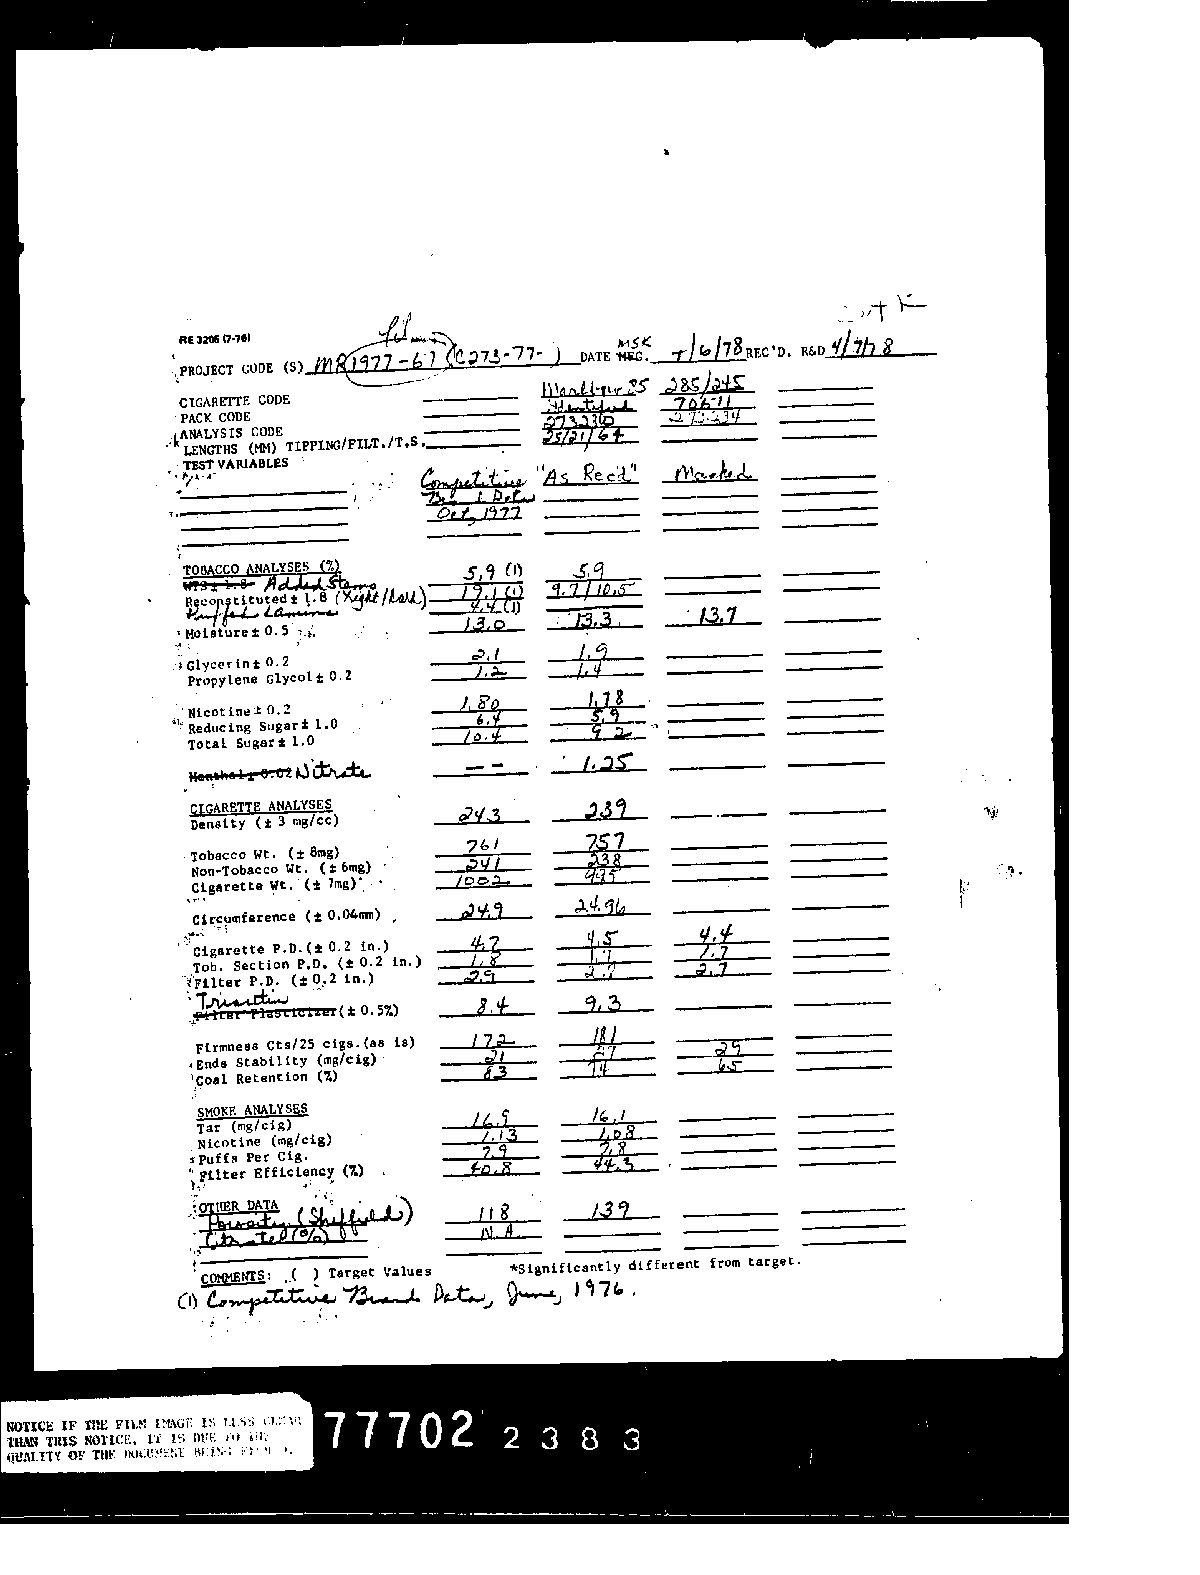 RE 3206 (7-76)
PROJECT CODE (S) MR1977-67 (C273-77- ) DATE MFG. MSK /6/78 REC'D. R&D 4/7/78
CIGARETTE CODE 85 285/245
PACK CODE Identified 70611
ANALYSIS CODE 273236 273234
LENGTHS (MM) TIPPING/FILT./T.S. 25/21/64
TEST VARIABLES
Competitive "As Rec'd" Masked
Brand Data
Oct, 1977
TOBACCO ANALYSES (%)
Added Stems 5.9 (1) 5.9
Reconstituted ± 1.8 (Light/Dark) 19.1 (1) 9.7/10.5
Puffed Lamina 4.4 (1)
Moisture ± 0.5 13.0 13.3 13.7
Glycerin ± 0.2 2.1 1.9
Propylene Glycol ± 0.2 1.2 1.4
Nicotine ± 0.2 1.80 1.78
Reducing Sugar ± 1.0 6.4 5.9
Total Sugar ± 1.0 10.4 9.2
Menthol ± 0.02 Nitrate -- 1.25
CIGARETTE ANALYSES
Density (± 3 mg/cc) 243 239
Tobacco Wt. (± 8mg) 761 757
Non-Tobacco Wt. (± 6mg) 241 238
Cigarette Wt. (± 7mg) 1002 995
Circumference (± 0.04mm) 24.9 24.96
Cigarette P.D. (± 0.2 in.) 4.7 4.5 4.4
Tob. Section P.D. (± 0.2 in.) 1.8 1.7 1.7
Filter P.D. (± 0.2 in.) 2.9 2.7 2.7
Triacetin
Filter Plasticizer (± 0.5%) 8.4 9.3
Firmness Cts/25 cigs. (as is) 172 181
Ends Stability (mg/cig) 21 29
Coal Retention (%) 83 74 65
SMOKE ANALYSES
Tar (mg/cig) 16.9 16.1
Nicotine (mg/cig) 1.13 1.08
Puffs Per Cig. 7.9 7.8
Filter Efficiency (%) 40.8 44.3
OTHER DATA
Porosity (Sheffield) 118 139
Citrate (%) N.A.
COMMENTS: ( ) Target Values *Significantly different from target.
(1) Competitive Brand Data, June, 1976.
NOTICE IF THE FILM IMAGE IS LESS CLEAR
THAN THIS NOTICE, IT IS DUE TO THE
QUALITY OF THE DOCUMENT BEING FILMED.
77702 2383